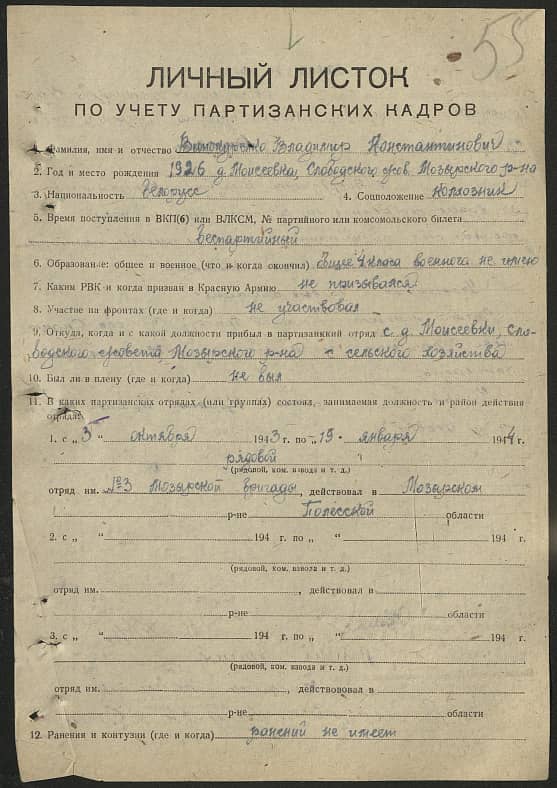 55
ЛИЧНЫЙ ЛИСТОК
ПО УЧЕТУ ПАРТИЗАНСКИХ КАДРОВ
1. Фамилия, имя и отчество Владимир Константинович
2. Год и место рождения 1926 д. Моисеевка, Слободского с/сов. Мозырского р-на
3. Национальность Белорусс 4. Соцположение Колхозник
5. Время поступления в ВКП(б) или ВЛКСМ, № партийного или комсомольского билета
Беспартийный
6. Образование: общее и военное (что и когда окончил) Общее 4 класа военного не имею
7. Каким РВК и когда призван в Красную Армию не призывался
8. Участие на фронтах (где и когда) не участвовал
9. Откуда, когда и с какой должности прибыл в партизанский отряд с д. Моисеевки, Сло-
водского с/совета Мозырского р-на с сельского хозяйства
10. Был ли в плену (где и когда) не был
11. В каких партизанских отрядах (или группах) состоял, занимаемая должность и район действия
отряда:
1. с „ 5 “ октября 1943 г. по „ 15 “ января 1944 г.
рядовой
(рядовой, ком. взвода и т. д.)
отряд им. №3 Мозырской бригады, действовал в Мозырском
р-не Полесской области
2. с „ “ 194 г. по „ “ 194 г.
(рядовой, ком. взвода и т. д.)
отряд им. , действовал в
р-не области
3. с „ “ 194 г. по „ “ 194 г.
(рядовой, ком. взвода и т. д.)
отряд им. , действововал в
р-не области
12. Ранения и контузии (где и когда) ранений не имеет